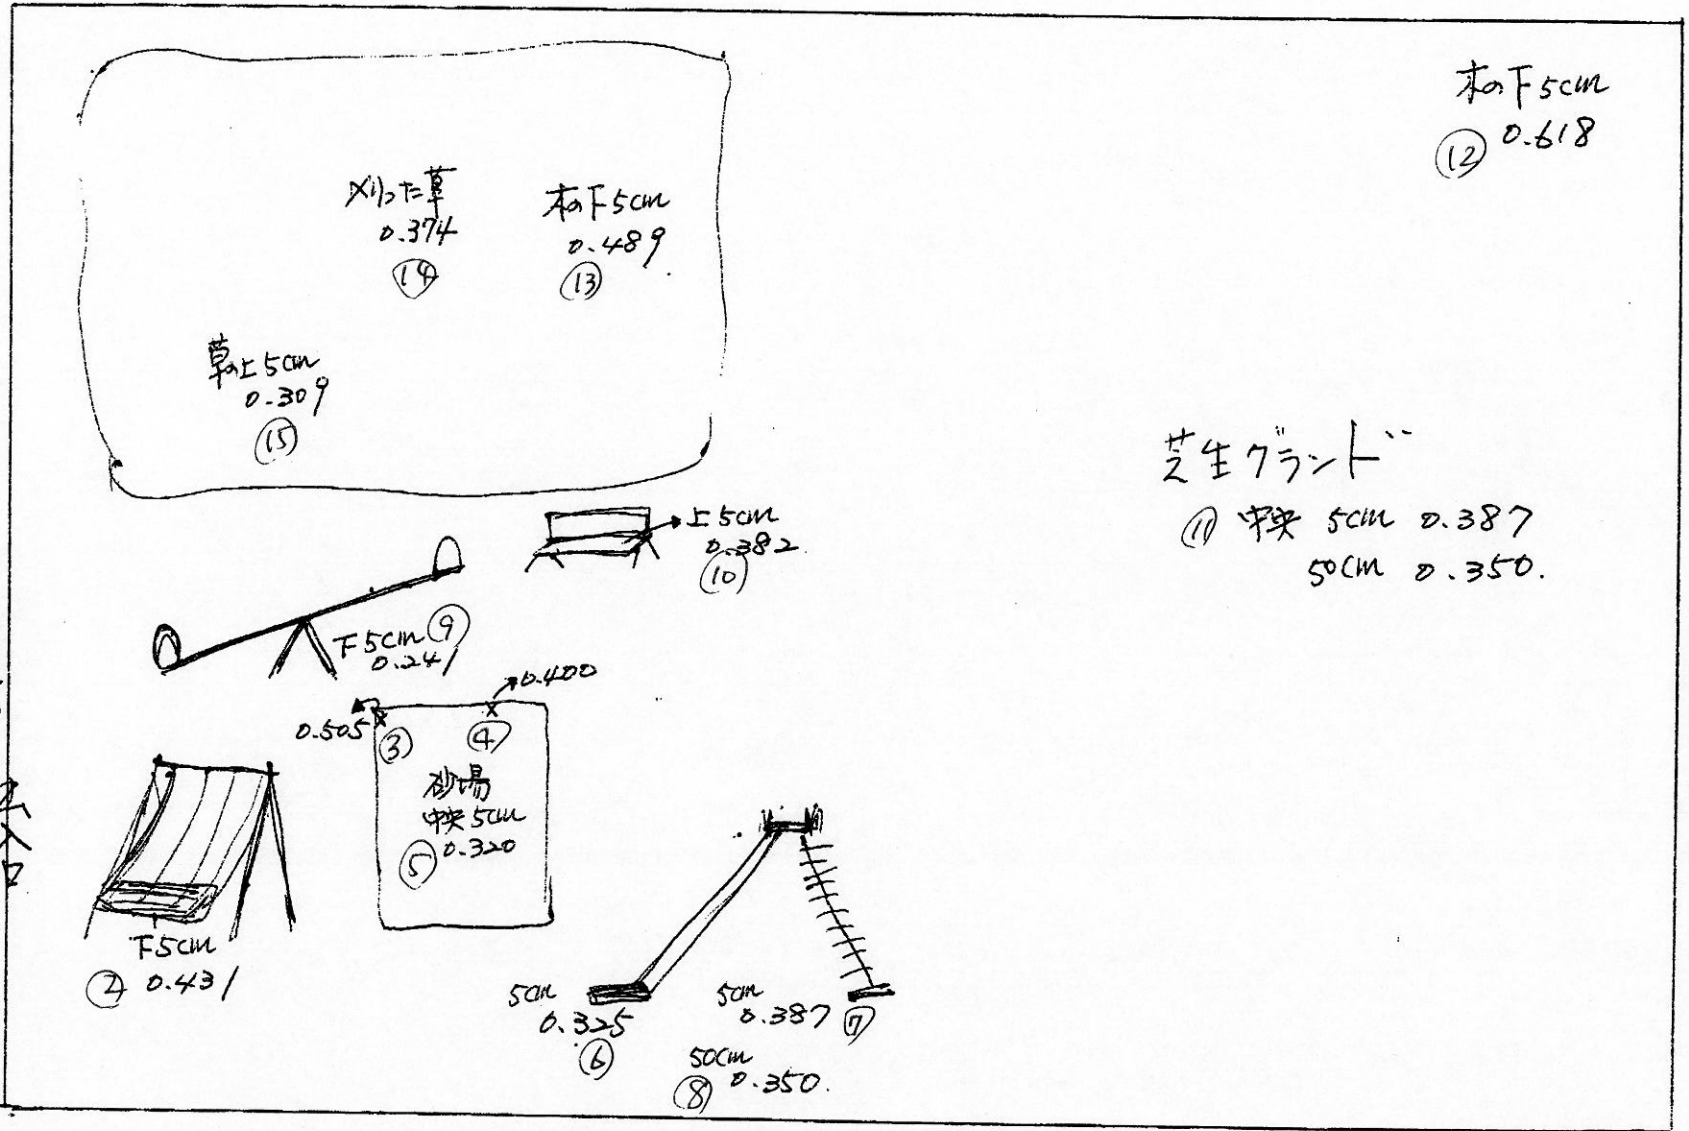 木の下5cm
⑫ 0.618
刈った草
0.374
⑭
木の下5cm
0.489
⑬
草の上5cm
0.309
⑮
芝生グランド
⑪ 中央 5cm 0.387
50cm 0.350.
上5cm
0.382
⑩
下5cm ⑨
0.241
0.400
0.505 ③
④
砂場
中央5cm
⑤ 0.320
下5cm
② 0.431
5cm
0.325
⑥
5cm
0.387 ⑦
50cm
⑧ 0.350.
入口